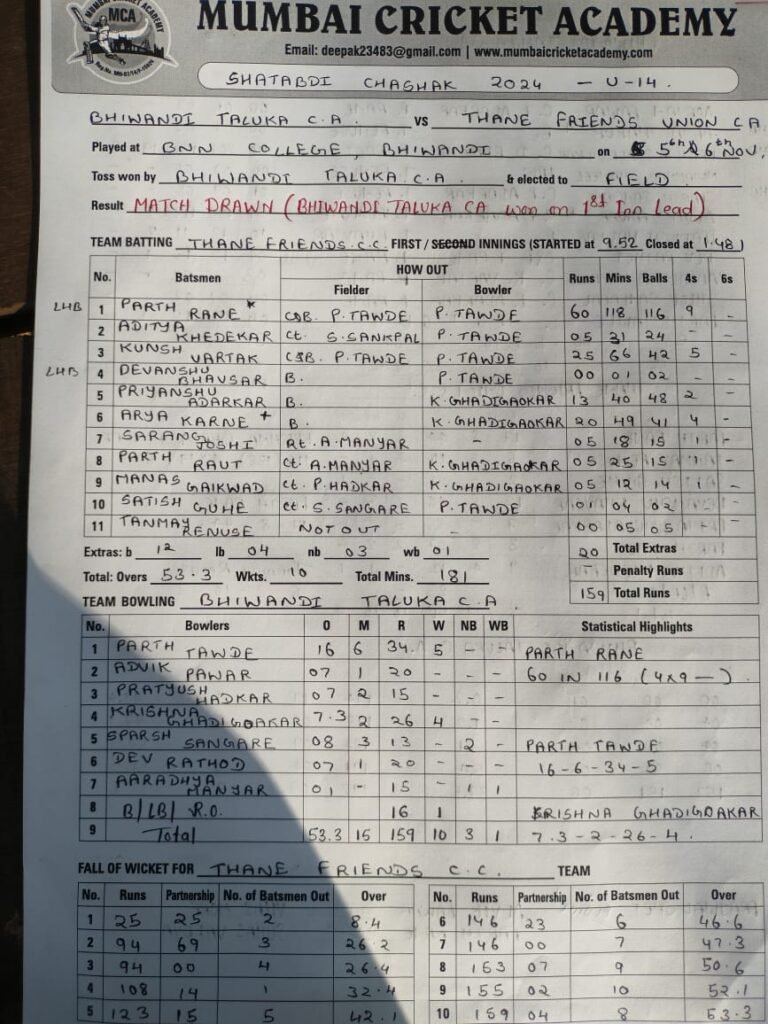 MUMBAI CRICKET ACADEMY
MUMBAI CRICKET ACADEMY
MCA
Email: deepak23483@gmail.com | www.mumbaicricketacademy.com
SHATABDI CHASHAK 2024 - U-14.
BHIWANDI TALUKA C.A. vs THANE FRIENDS UNION CA
Played at BNN COLLEGE, BHIWANDI on 5th & 6th NOV.
Toss won by BHIWANDI TALUKA C.A & elected to FIELD
Result MATCH DRAWN (BHIWANDI TALUKA CA won on 1st Inn Lead)
TEAM BATTING THANE FRIENDS.C.C. FIRST / SECOND INNINGS (STARTED at 9.52 Closed at 1.48)
No. Batsmen HOW OUT Runs Mins Balls 4s 6s
Fielder Bowler
LHB 1 PARTH RANE * C&B. P.TAWDE P.TAWDE 60 118 116 9 -
2 ADITYA KHEDEKAR Ct. S.SANKPAL P.TAWDE 05 31 24 - -
3 KUNSH VARTAK C&B P.TAWDE P.TAWDE 25 66 42 5 -
LHB 4 DEVANSHU BHAVSAR B. P.TAWDE 00 01 02 - -
5 PRIYANSHU ADARKAR B. K.GHADIGAOKAR 13 40 48 2 -
6 ARYA KARNE + B. K.GHADIGAOKAR 20 49 41 4 -
7 SARANG JOSHI Rt. A.MANYAR - 05 18 15 1 -
8 PARTH RAUT Ct. A.MANYAR K.GHADIGAOKAR 05 25 15 1 -
9 MANAS GAIKWAD Ct. P.HADKAR K.GHADIGAOKAR 05 12 14 1 -
10 SATISH GUHE Ct. S.SANGARE P.TAWDE 01 04 02 - -
11 TANMAY RENUSE NOT OUT - 00 05 05 - -
Extras: b 12 lb 04 nb 03 wb 01 20 Total Extras
- Penalty Runs
Total: Overs 53.3 Wkts. 10 Total Mins. 181 159 Total Runs
TEAM BOWLING BHIWANDI TALUKA C.A
No. Bowlers O M R W NB WB Statistical Highlights
1 PARTH TAWDE 16 6 34. 5 - - PARTH RANE
2 ADVIK PAWAR 07 1 20 - - - 60 IN 116 (4x9 -).
3 PRATYUSH HADKAR 07 2 15 - - -
4 KRISHNA GHADIGOAKAR 7.3 2 26 4 - -
5 SPARSH SANGARE 08 3 13 - 2 - PARTH TAWDE
6 DEV RATHOD 07 1 20 - - - 16-6-34-5
7 AARADHYA MANYAR 01 - 15 - 1 1
8 B/LB/R.O. 16 1 KRISHNA GHADIGOAKAR
9 Total 53.3 15 159 10 3 1 7.3-2-26-4.
FALL OF WICKET FOR THANE FRIENDS C.C. TEAM
No. Runs Partnership No. of Batsmen Out Over No. Runs Partnership No. of Batsmen Out Over
1 25 25 2 8.4 6 146 23 6 46.6
2 94 69 3 26.2 7 146 00 7 47.3
3 94 00 4 26.4 8 153 07 9 50.6
4 108 14 1 32.4 9 155 02 10 52.1
5 123 15 5 42.1 10 159 04 8 53.3